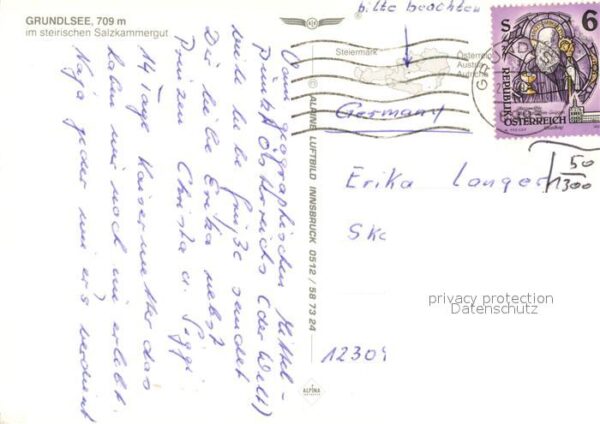 GRUNDLSEE, 709 m
im steirischen Salzkammergut
Vom geographischen Mittel-
punkt Österreichs (der Welt)
viele liebe Grüße sendet
Dir liebe Erika nebst
Prinzen Christa u. Siggi
14 Tage Kaiserwetter das
haben wir noch nie erlebt.
Naja jeder wie er's verdient
© ALPINE LUFTBILD INNSBRUCK 0512 / 58 73 24
ALPINA
bitte beachten
Steiermark
Österreich
Austria
Autriche
Germany
REPUBLIK
ÖSTERREICH
6
Erika Langer
50
1300
Ske
privacy protection
Datenschutz
12309